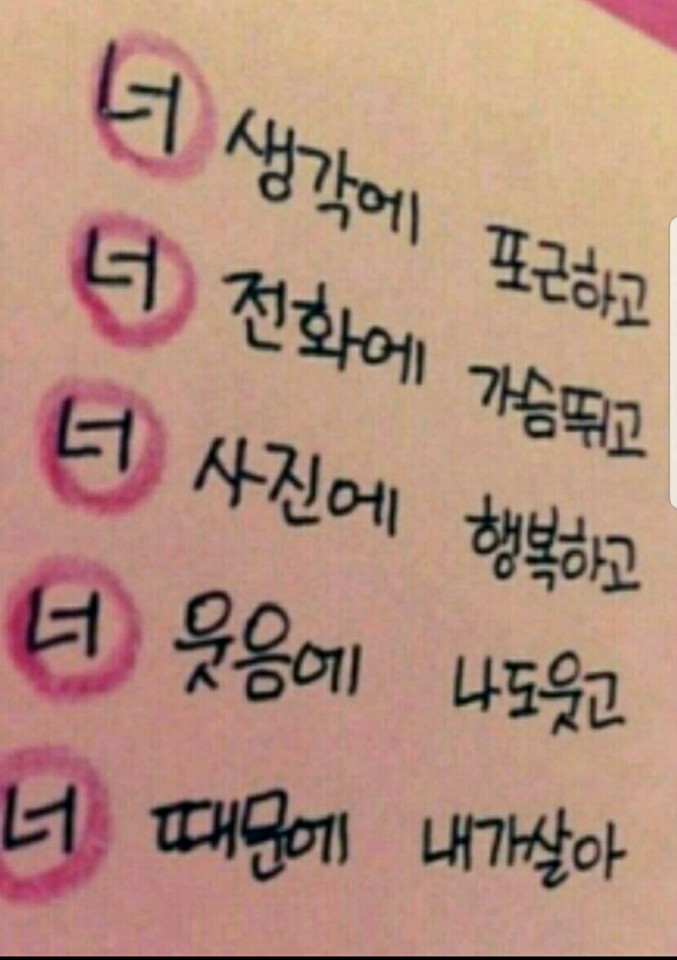 너 생각에 포근하고
너 전화에 가슴뛰고
너 사진에 행복하고
너 웃음에 나도웃고
너 때문에 내가살아